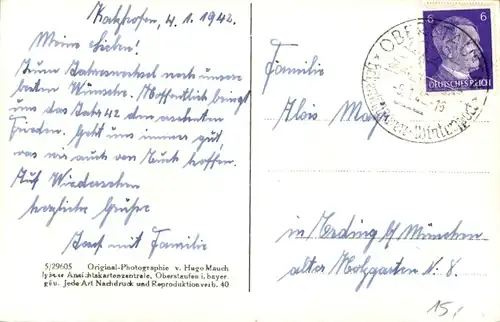 Kalzhofen, 4.1.1942.
Meine Lieben!
Zum Jahreswechsel noch unsere
besten Wünsche. Hoffentlich bringt
uns das Jahr 42 den ersehnten
Frieden. Geht uns immer gut,
was wir auch von Euch hoffen.
Auf Wiedersehen
herzliche Grüße
mit Familie
5/29605 Original-Photographie v. Hugo Mauch
Ansichtskartenzentrale, Oberstaufen i. bayer.
gäu. Jede Art Nachdruck und Reproduktion verb. 40
6 6
DEUTSCHES REICH
OBERSTAUFEN
Familie
Alois Mayr
in Erding b/ München
alter Holzgarten N. 8.
15,